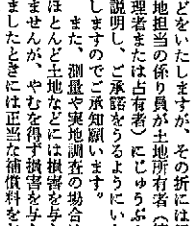 どをいたしますが、その折には
地担当の係り員が土地所有者（
理者または占有者）にじゅうぶ
説明し、ご承諾をうるようにい
しますのでご承知願います。
また、測量や実地調査の場合
ほとんど土地などには損害を与
ませんが、やむを得ず損害を与
ましたときには正当な補償料を